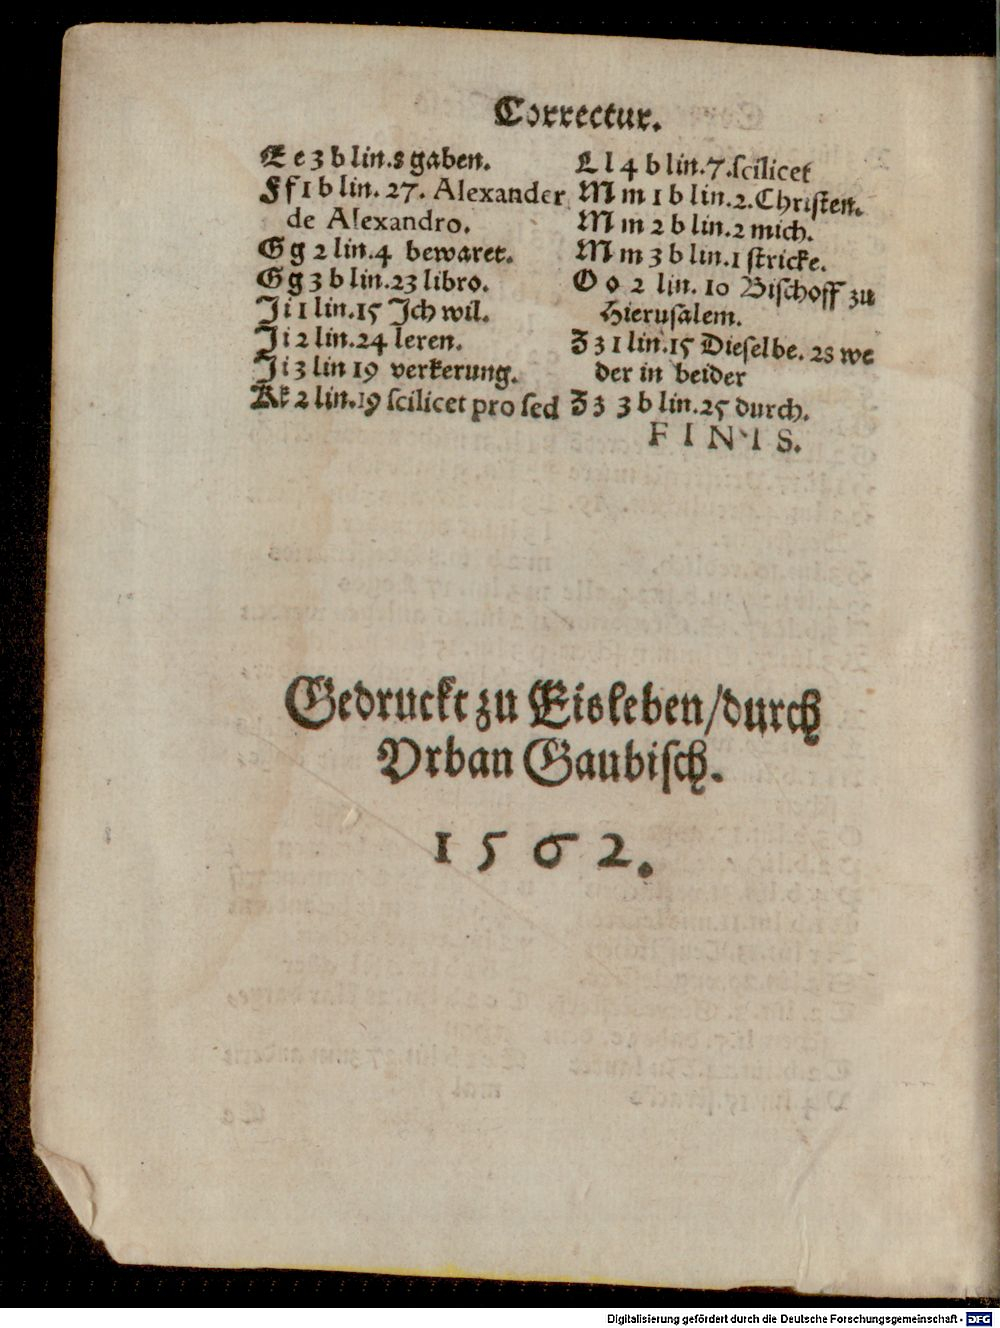 Correctur.
E e 3 b lin.8 gaben.
F f 1 b lin. 27. Alexander
de Alexandro.
G g 2 lin.4 bewaret.
G g 3 b lin.23 libro.
J i 1 lin.15 Jch wil.
J i 2 lin.24 leren.
J i 3 lin 19 verkerung.
K k 2 lin.19 scilicet pro sed
L l 4 b lin.7.scilicet
M m 1 b lin.2.Christen.
M m 2 b lin.2 mich.
M m 3 b lin.1 stricke.
O o 2 lin. 10 Bischoff zu
Hierusalem.
Z z 1 lin.15 Dieselbe. 28 we
der in beider
Z z 3 b lin.25 durch.
FINIS.
Gedruckt zu Eisleben/durch
Vrban Gaubisch.
1562.
Digitalisierung gefördert durch die Deutsche Forschungsgemeinschaft - DFG